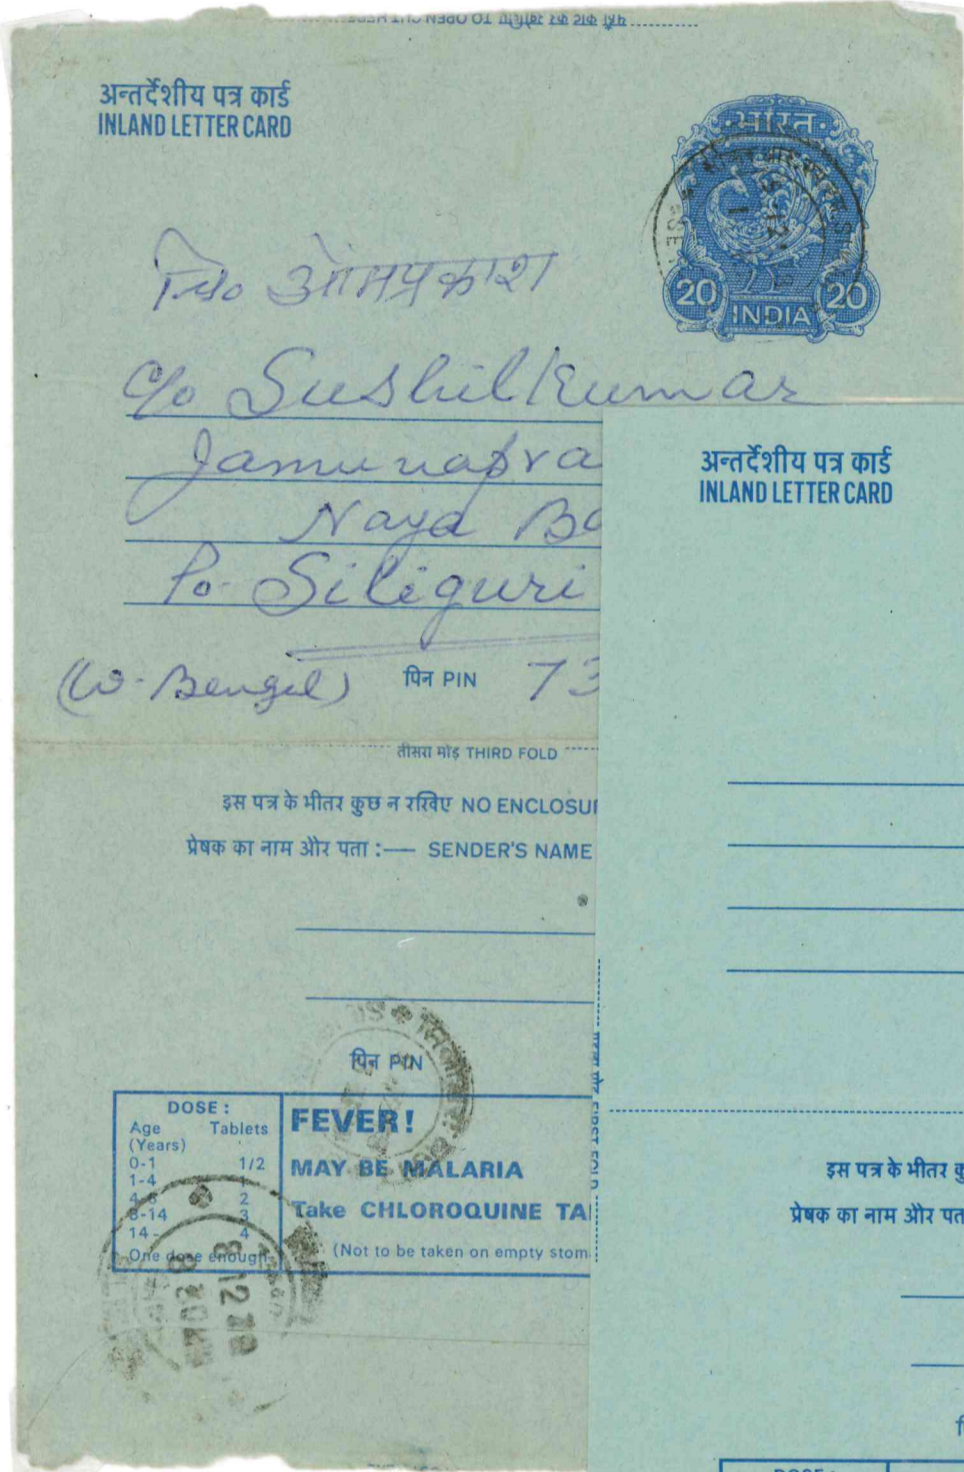 यहाँ काट कर खोलिए TO OPEN CUT HERE
अन्तर्देशीय पत्र कार्ड
INLAND LETTER CARD
भारत
20 20
INDIA
ओमप्रकाश
c/o Sushil Kumar
Jamunapra
Naya Ba
Po. Siliguri
(W. Bengal) पिन PIN 73
तीसरा मोड़ THIRD FOLD
इस पत्र के भीतर कुछ न रखिए NO ENCLOSUR
प्रेषक का नाम और पता :— SENDER'S NAME
पिन PIN
DOSE :
Age Tablets
(Years)
0-1 1/2
1-4 1
4-8 2
8-14 3
14- 4
One dose enough
FEVER!
MAY BE MALARIA
Take CHLOROQUINE TA
(Not to be taken on empty stom
8 12 78
FIRST FOLD
अन्तर्देशीय पत्र कार्ड
INLAND LETTER CARD
इस पत्र के भीतर कु
प्रेषक का नाम और पत
DOSE :